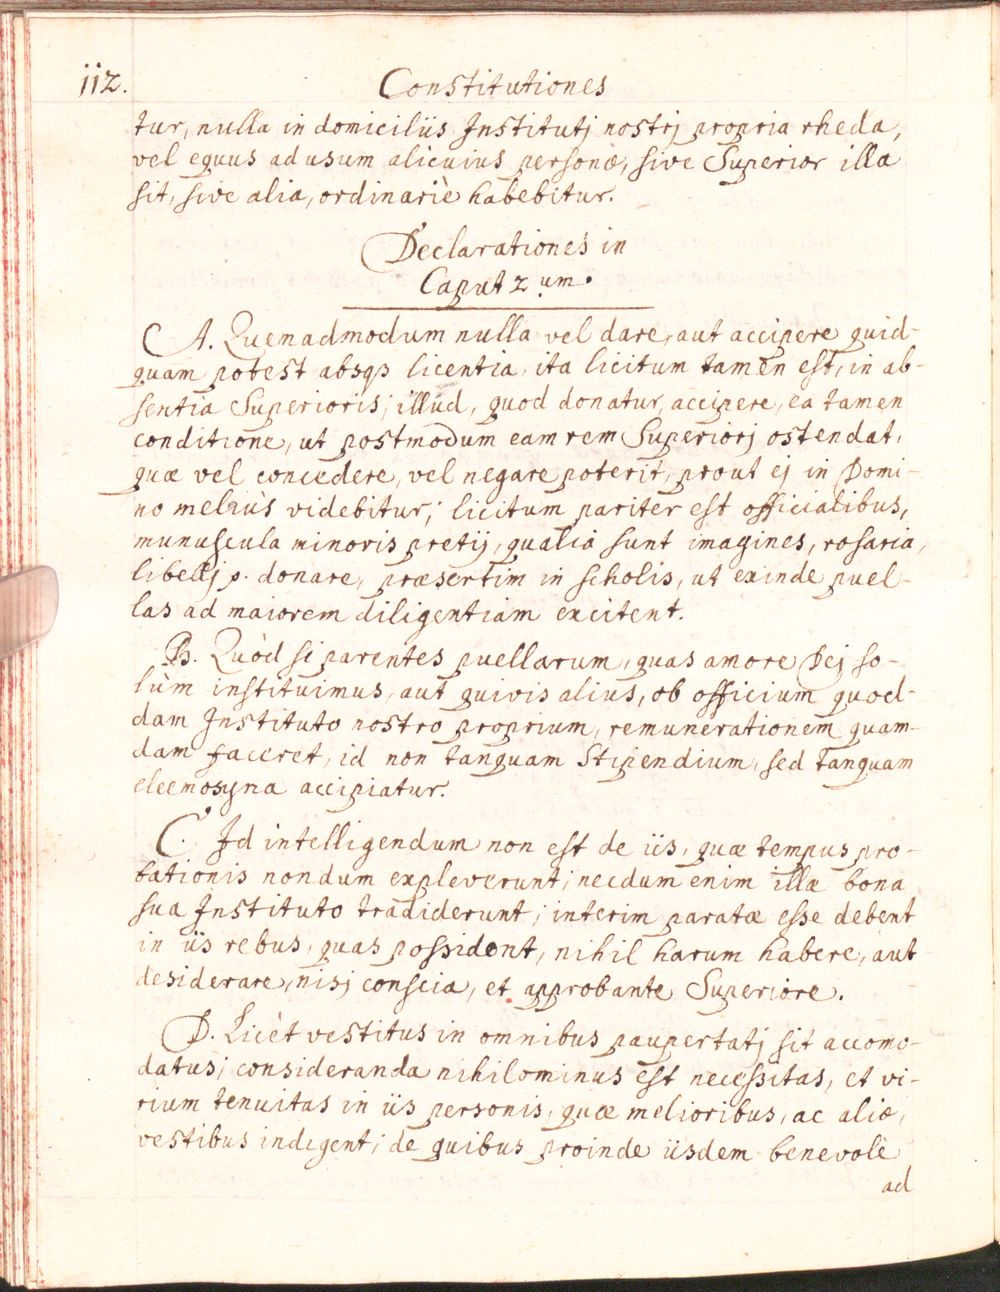 112.
Constitutiones
tur, nulla in domiciliis Institutj nostrj propria rheda,
vel equus ad usum alicuius personæ, sive Superior illa
sit, sive alia, ordinariè habebitur.
Declarationes in
Caput 2.um.
A. Quemadmodum nulla vel dare, aut accipere quid-
quam potest absqȝ licentia, ita licitum tamen est, in ab-
sentia Superioris, illud, quod donatur, accipere, ea tamen
conditione, ut postmodum eam rem Superiorj ostendat,
quæ vel concedere, vel negare poterit, prout ej in Domi-
no meliùs videbitur; licitum pariter est officialibus,
munuscula minoris pretij, qualia sunt imagines, rosaria,
libellj p. donare, præsertim in scholis, ut exinde puel-
las ad maiorem diligentiam excitent.
B. Quòd si parentes puellarum, quas amore Dej so-
lùm instituimus, aut quivis alius, ob officium quod-
dam Instituto nostro proprium, remunerationem quam-
dam faceret, id non tanquam Stipendium, sed tanquam
eleemosyna accipiatur.
C. Id intelligendum non est de iis, quæ tempus pro-
bationis nondum expleverunt; necdum enim illæ bona
sua Instituto tradiderunt; interim paratæ esse debent
in iis rebus, quas possident, nihil harum habere, aut
desiderare, nisj conscia, et approbante Superiore.
D. Licèt vestitus in omnibus paupertatj sit accomo-
datus; consideranda nihilominus est necessitas, et vi-
rium tenuitas in iis personis, quæ melioribus, ac aliæ,
vestibus indigent; de quibus proinde iisdem benevolè
ad